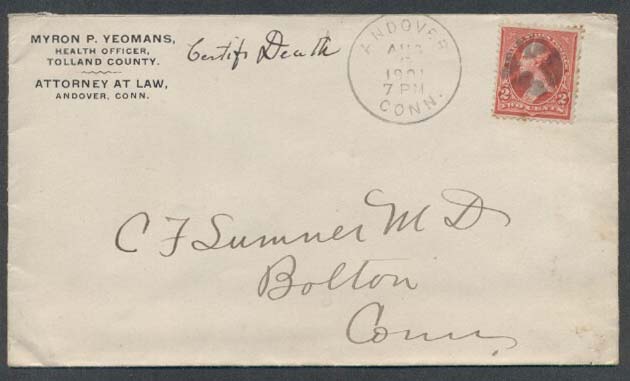 MYRON P. YEOMANS,
HEALTH OFFICER,
TOLLAND COUNTY.
ATTORNEY AT LAW,
ANDOVER, CONN.
Certif Death
ANDOVER
AUG
1901
7 PM
CONN.
2 2
TWO CENTS
C F Sumner M D
Bolton
Conn